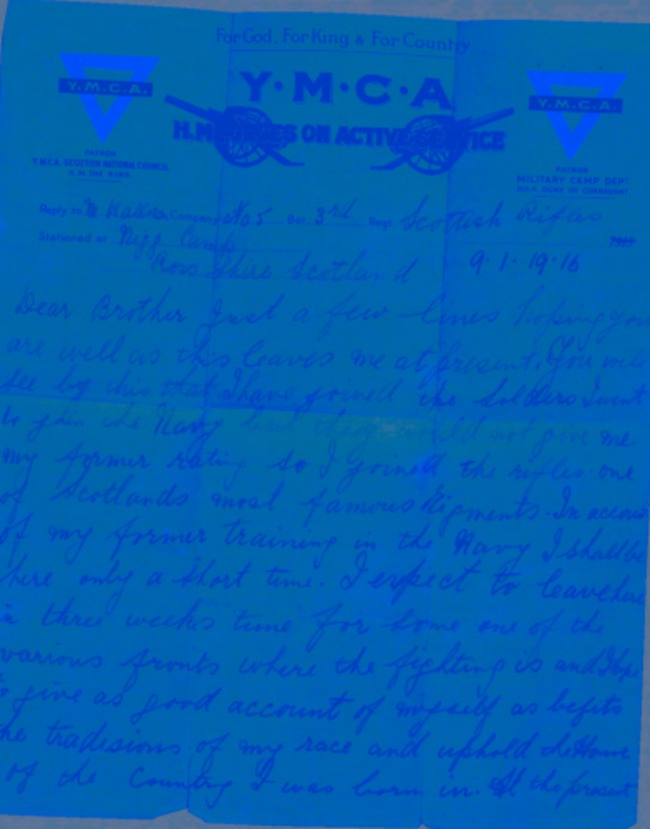 For God, For King & For Country
Y·M·C·A
Y.M.C.A.
Y.M.C.A.
H.M. FORCES ON ACTIVE SERVICE
PATRON
Y.M.C.A. SCOTTISH NATIONAL COUNCIL
H.M. THE KING
PATRON
MILITARY CAMP DEPT
H.R.H. DUKE OF CONNAUGHT
Reply to Company No 5 Bat. 3rd Regt. Scottish Rifles
Stationed at Nigg Camp
Ross Shire Scotland 9·1·1916
Dear Brother Just a few lines hoping you
are well as this leaves me at present. You will
see by this that I have joined the Soldiers I went
to join the Navy but they could not give me
my former rating so I joined the rifles one
of Scotlands most famous Rigments. In account
of my former training in the Navy I shall be
here only a short time. I expect to leave here
in three weeks time for some one of the
various fronts where the fighting is and I hope
to give as good account of myself as befits
the tradisions of my race and uphold the
of the Country I was born in. At the present